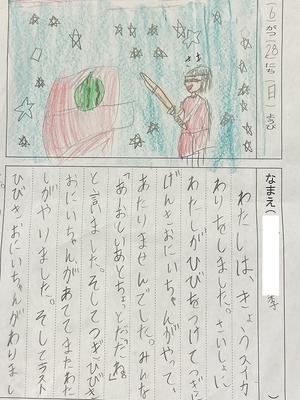 (6)がつ(28)にち(日)ようび
なまえ( )
わたしは、きょうスイカ
わりをしました。さいしょに
わたしがひびをつけてつぎに
げんきおにいちゃんがやって、
あたりませんでした。みんな
「あーおしいあとちょっとだったね」
と言いました。そしてつぎひびき
おにいちゃんがあててまたわた
しがやりました。そしてラスト
ひびきおにいちゃんがわりまし